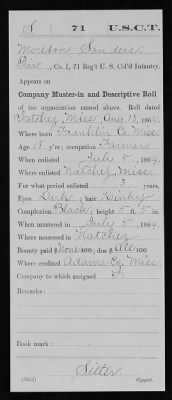 S | 71 | U.S.C.T.
Moreton Sanders
Priv, Co. I, 71 Reg't U. S. Col'd Infantry.
Appears on
Company Muster-in and Descriptive Roll
of the organization named above. Roll dated
Natchez Miss Aug 13, 1864.
Where born Franklin Co. Miss.
Age 18 y'rs; occupation Farmer
When enlisted July 5, 1864.
Where enlisted Natchez, Miss.
For what period enlisted 3 years.
Eyes Dark; hair Kinky
Complexion Black; height 5 ft. 5 in.
When mustered in July 5, 1864.
Where mustered in Natchez
Bounty paid $None 100; due $ All 100
Where credited Adams Co. Miss.
Company to which assigned
Remarks:
Book mark:
Sitter
Copyist.